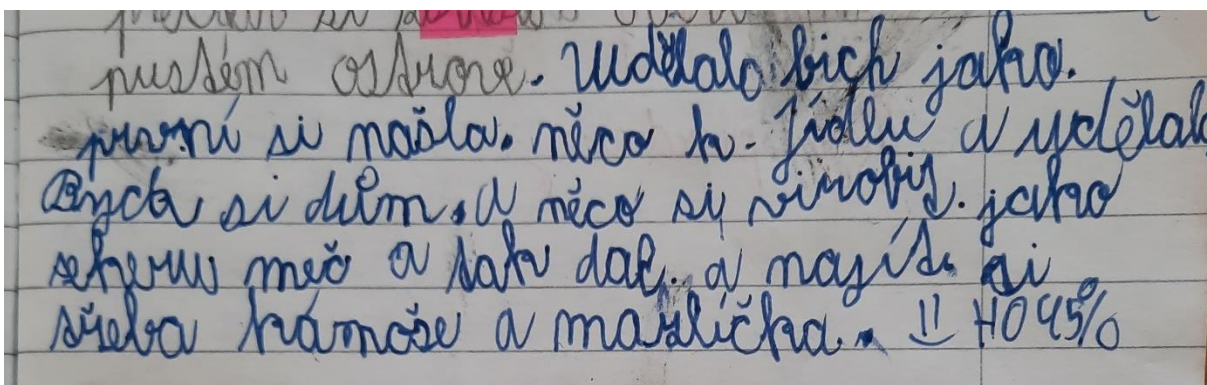 pustém ostrově. Udělala bich jako.
první si našla. něco k. Jídlu a udělala
Bych si dům. a něco si virobij. jako
sekeru meč a tak dal. a najít. si
třeba kámoše a mazlíčka. HO 45%